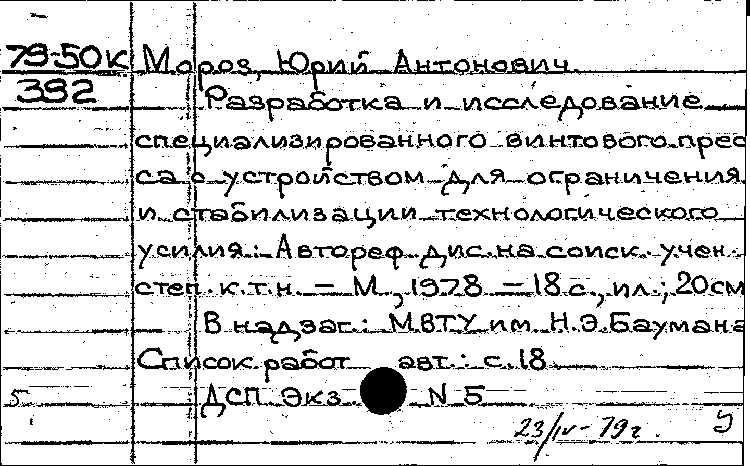 79-50к Мороз, Юрий Антонович.
392 Разработка и исследование
специализированного винтового прес
са с устройством для ограничения
и стабилизации технологического
усилия: Автореф. дис. на соиск. учен.
степ. к.т.н. – М., 1978. – 18 с., ил.; 20 см
В надзаг.: МВТУ им. Н.Э.Баумана
Список работ авт.: с.18
5 ДСП Экз. N 5
23/IV-79г.